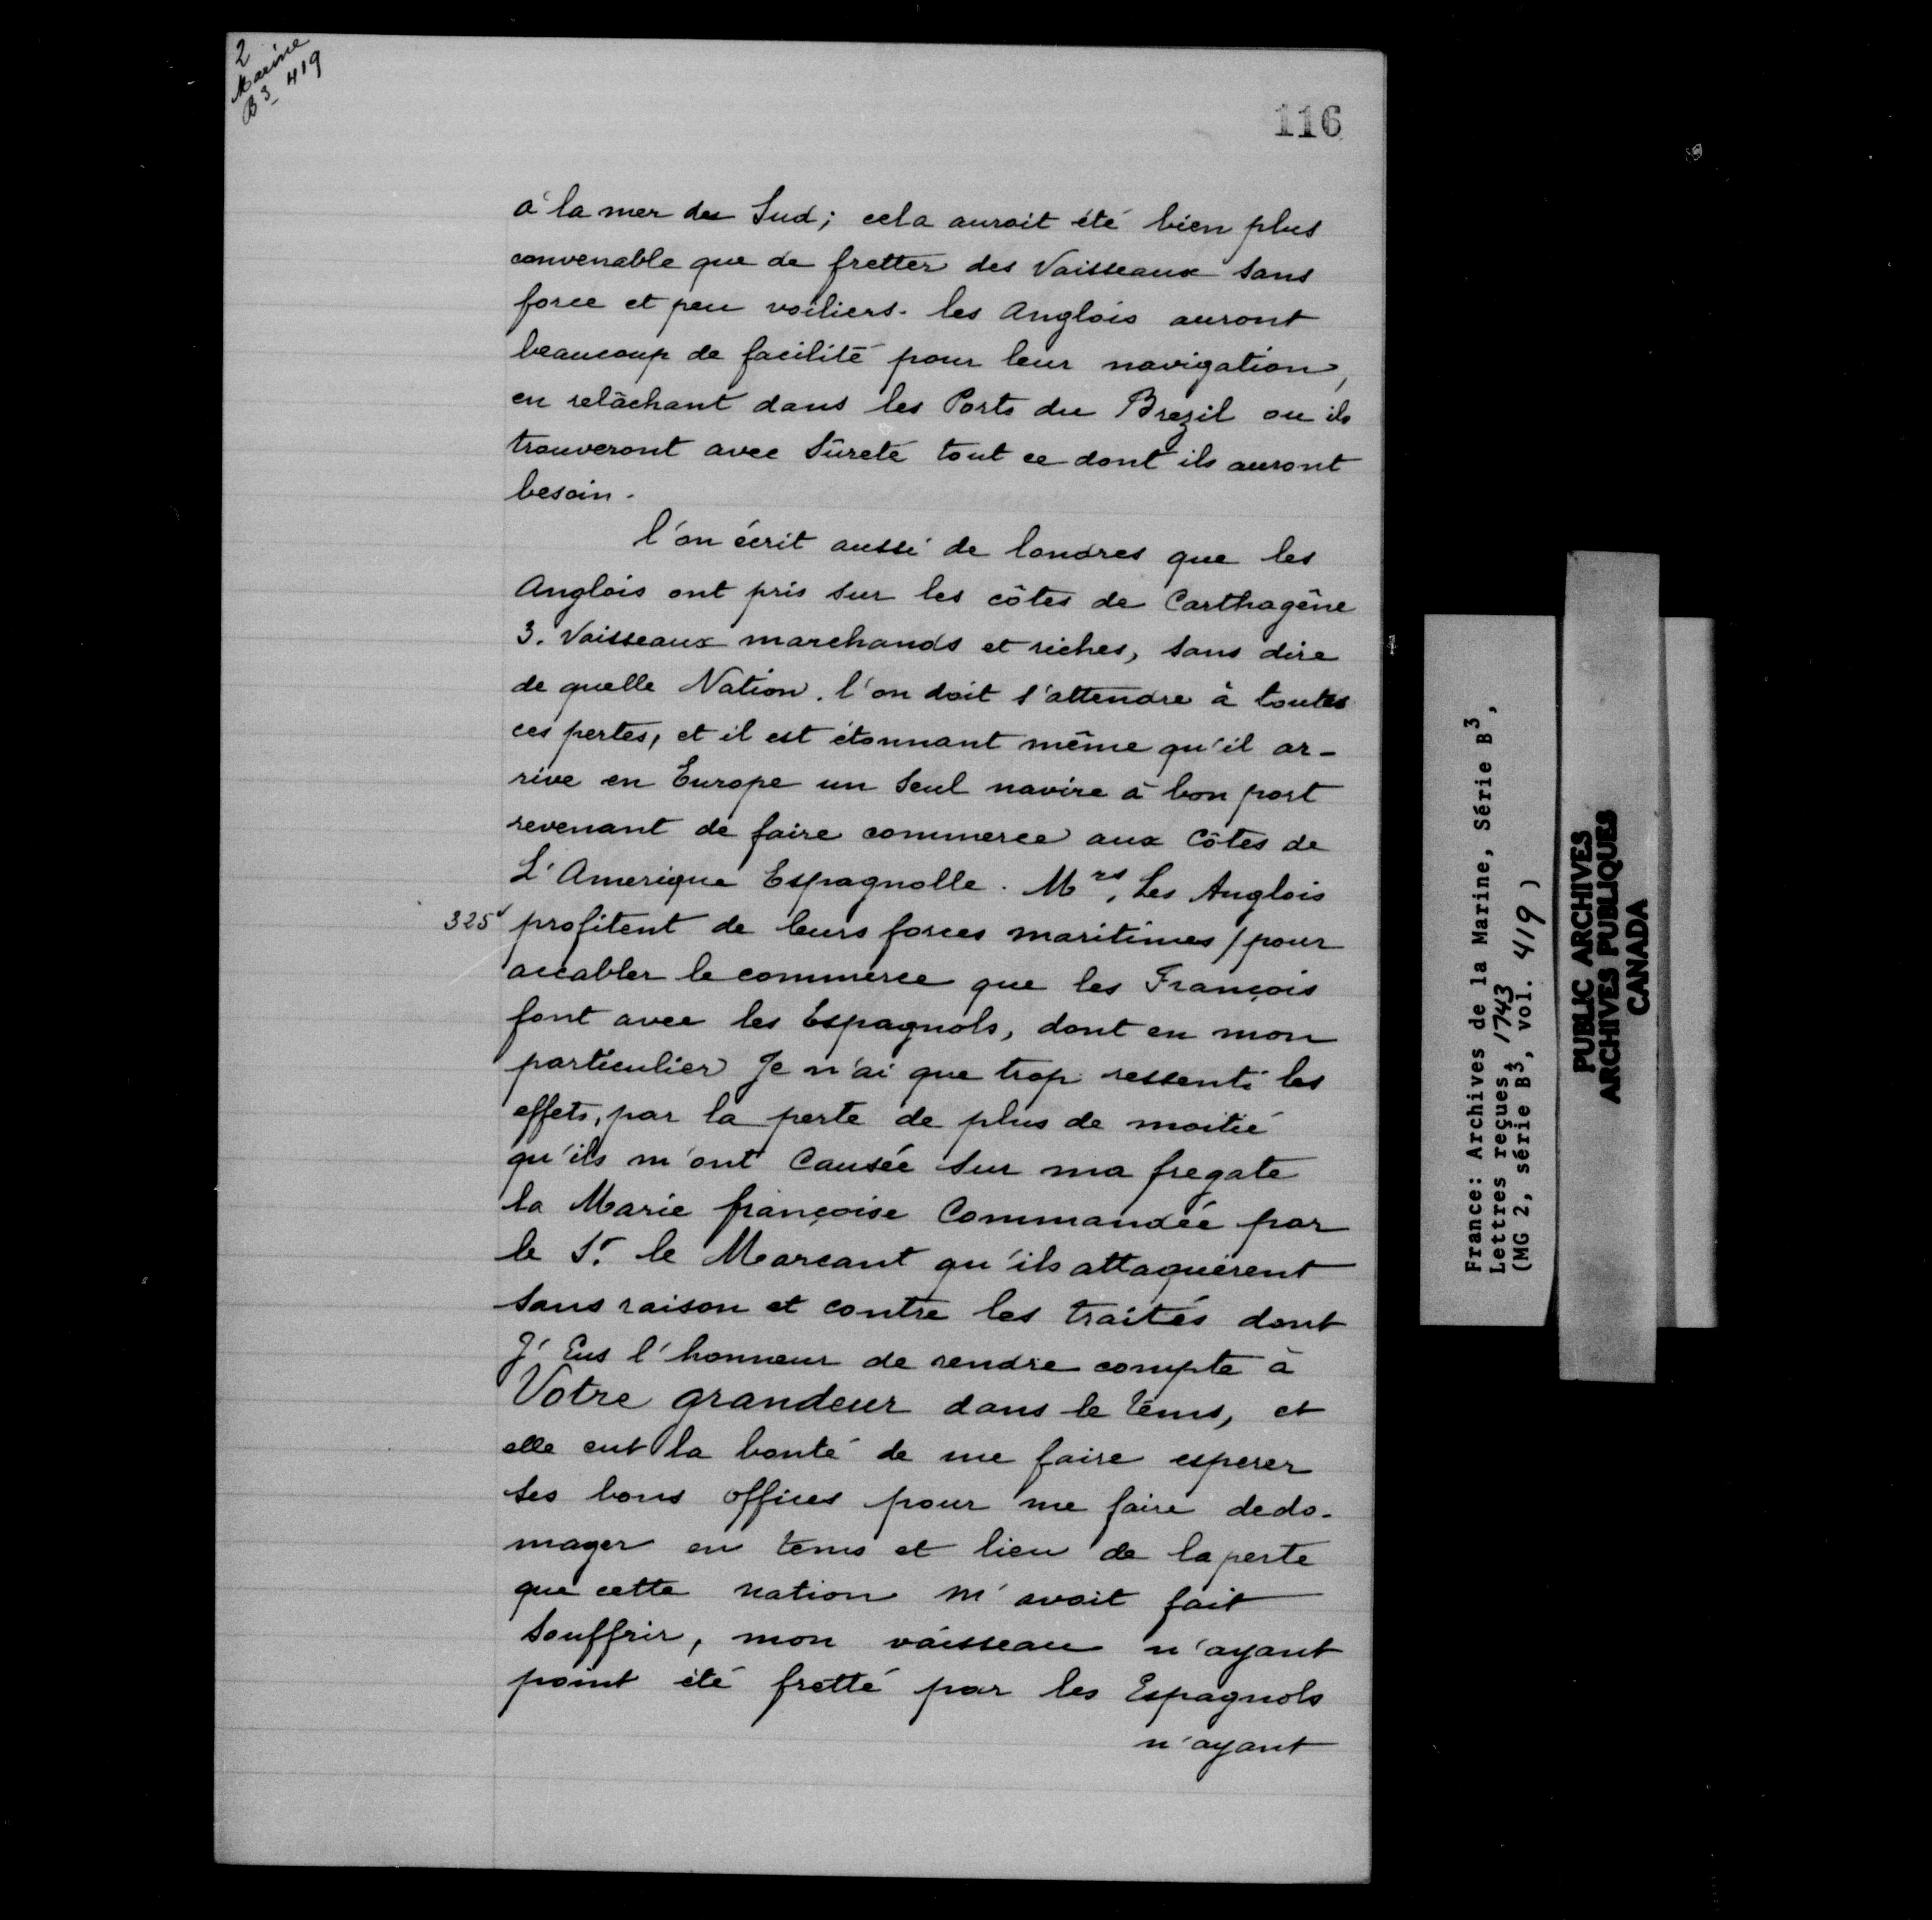 2
Marine
B3 419
116
à la mer du Sud; cela auroit été bien plus
convenable que de fretter des Vaisseaux sans
force et peu voiliers. les Anglois auront
beaucoup de facilité pour leur navigation,
en relâchant dans les Ports du Brezil ou ils
trouveront avec sûreté tout ce dont ils auront
besoin.
l'on écrit aussi de londres que les
Anglois ont pris sur les côtes de Carthagêne
3. Vaisseaux marchands et riches, sans dire
de quelle Nation. l'on doit s'attendre à toutes
ces pertes, et il est étonnant même qu'il ar-
rive en Europe un seul navire à bon port
revenant de faire commerce aux Côtes de
L'Amerique Espagnolle. Mrs. Les Anglois
325v profitent de leurs forces maritimes / pour
accabler le commerce que les François
font avec les Espagnols, dont en mon
particulier Je n'ai que trop ressenti les
effets, par la perte de plus de moitié
qu'ils m'ont Causée sur ma fregate
la Marie françoise Commandée par
le Sr. le Marcant qu'ils attaquérent
sans raison et contre les traités dont
J'Eus l'honneur de rendre compte à
Votre grandeur dans le têms, et
elle eut la bonté de me faire esperer
ses bons offices pour me faire dedo-
mager en tems et lieu de la perte
que cette nation m'avoit fait
souffrir, mon vaisseau n'ayant
point été fretté par les Espagnols
n'ayant
France: Archives de la Marine, Série B3,
Lettres reçues, 1743
(MG 2, série B3, vol. 419)
PUBLIC ARCHIVES
ARCHIVES PUBLIQUES
CANADA